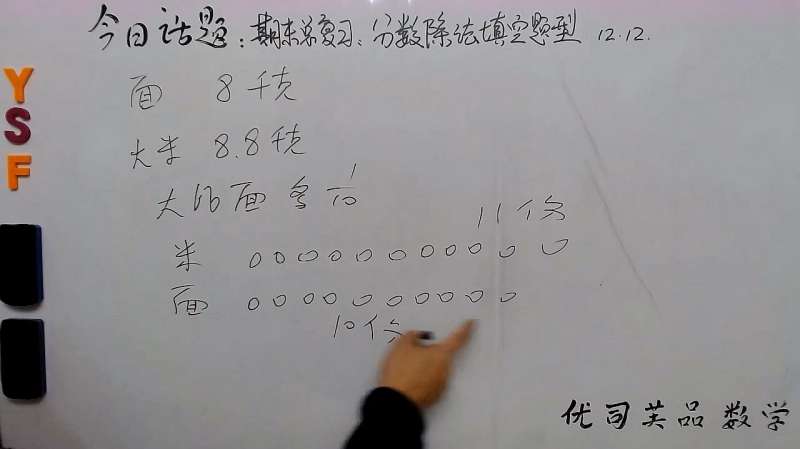 今日话题：期末总复习：分数除法填空题型 12.12.
YSF
面 8千克
大米 8.8千克
大比面多 1/10
11个份
米 0 0 0 0 0 0 0 0 0 0 0
面 0 0 0 0 0 0 0 0 0 0
10个份
优司英品数学